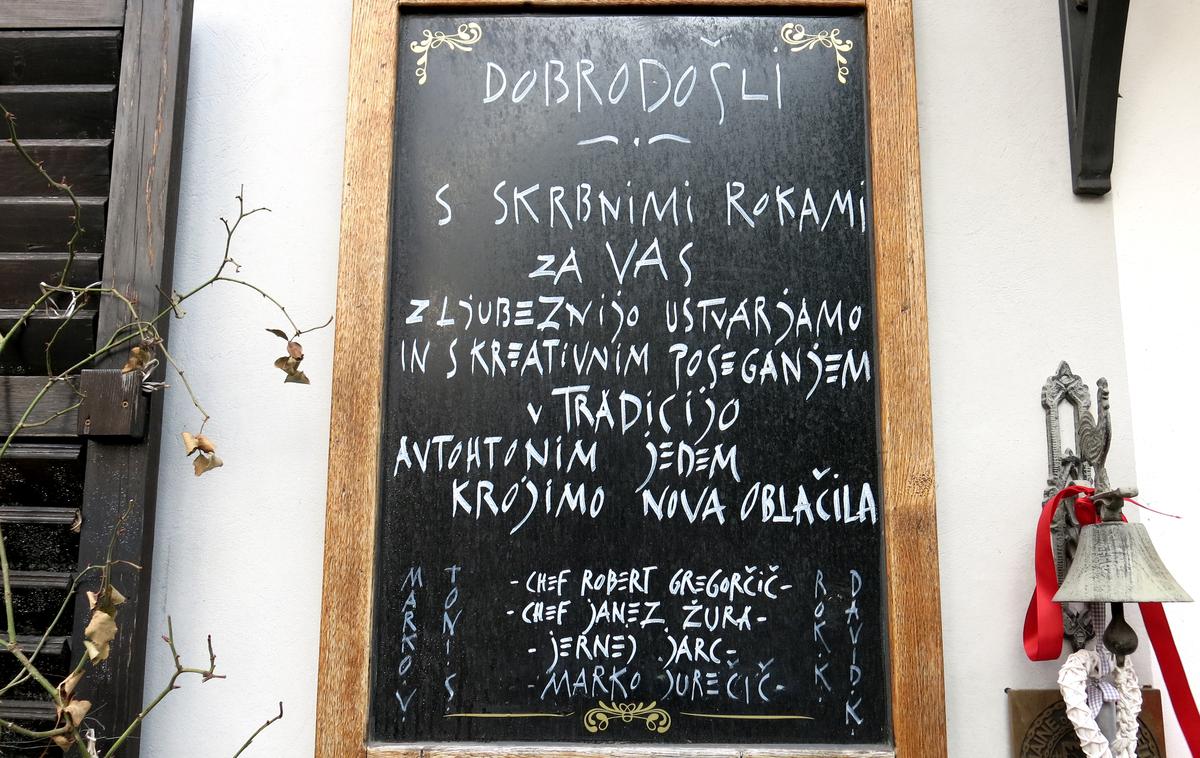 DOBRODOŠLI
S SKRBNIMI ROKAMI
ZA VAS
Z LJUBEZNIJO USTVARJAMO
IN S KREATIVNIM POSEGANJEM
V TRADICIJO
AVTOHTONIM JEDEM
KROJIMO NOVA OBLAČILA
MARKO V.
TONI S.
- CHEF ROBERT GREGORČIČ -
- CHEF JANEZ ŽURA -
- JERNEJ JARC -
- MARKO JUREČIČ -
ROK K.
DAVID K.